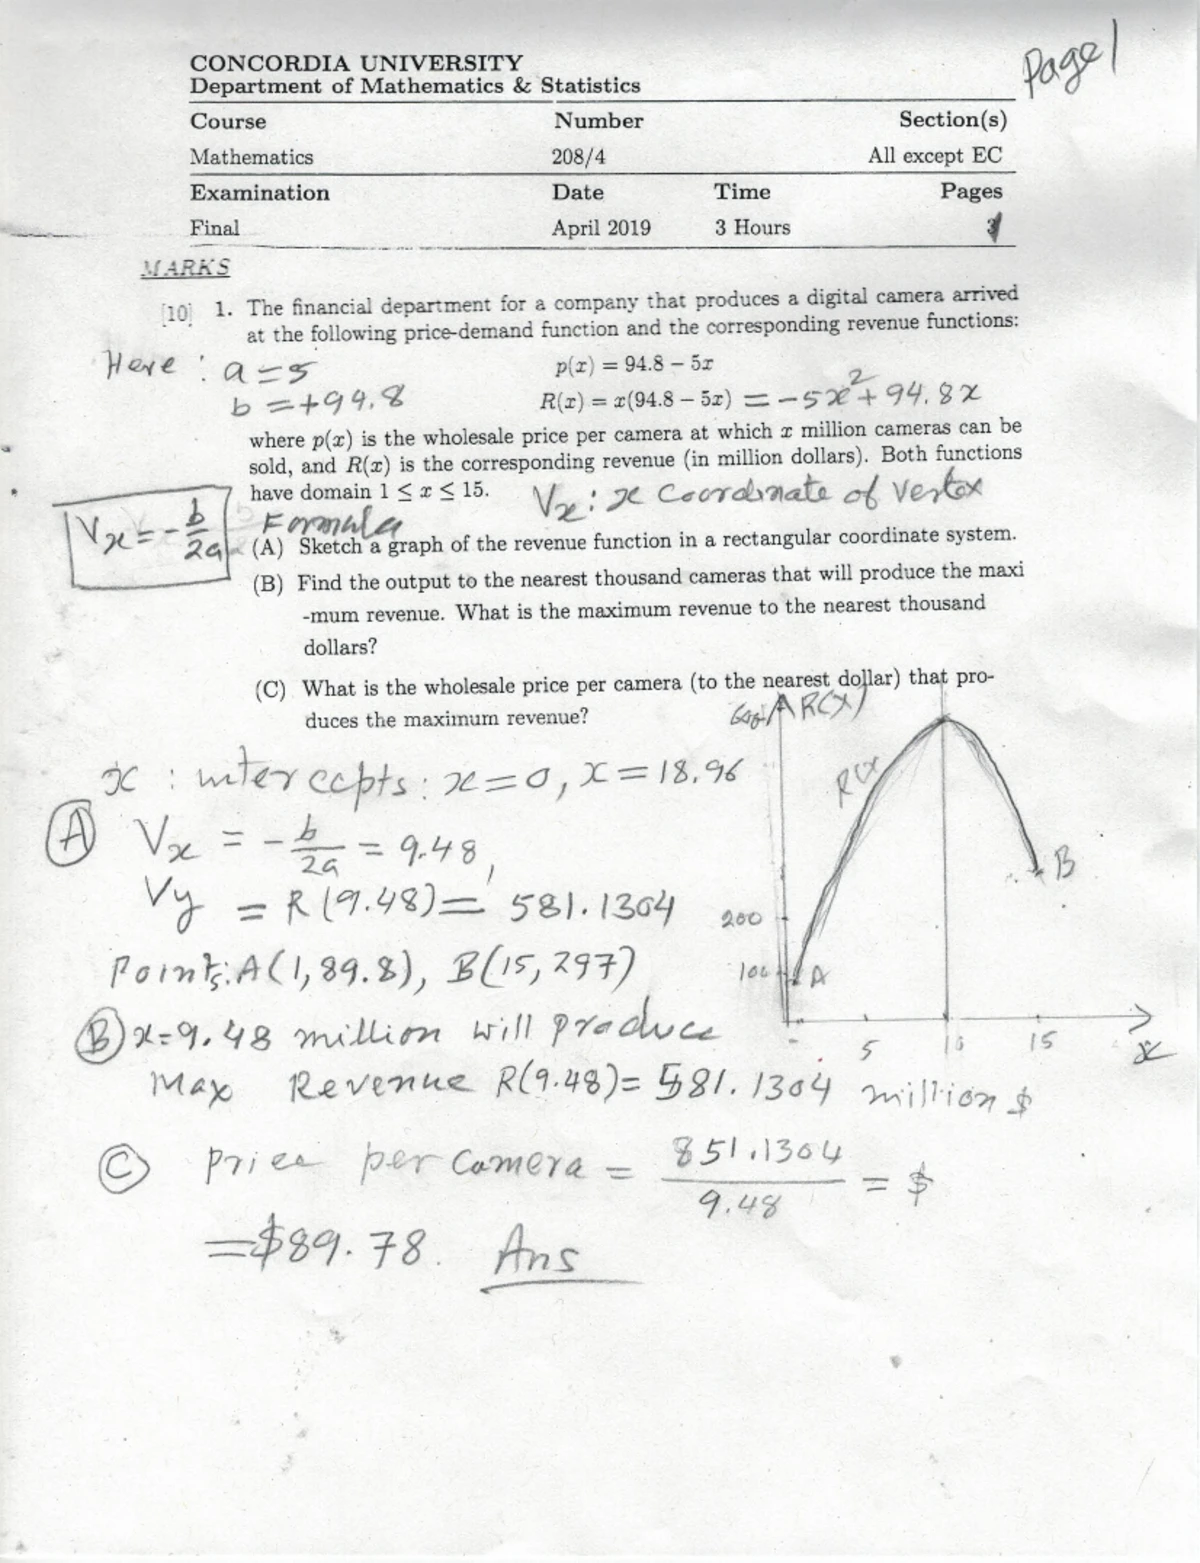 Page 1
CONCORDIA UNIVERSITY
Department of Mathematics & Statistics
Course Number Section(s)
Mathematics 208/4 All except EC
Examination Date Time Pages
Final April 2019 3 Hours
MARKS
[10] 1. The financial department for a company that produces a digital camera arrived
at the following price-demand function and the corresponding revenue functions:
Here : a = 5 p(x) = 94.8 – 5x
b = +94.8 R(x) = x(94.8 – 5x) = -5x² + 94.8x
where p(x) is the wholesale price per camera at which x million cameras can be
sold, and R(x) is the corresponding revenue (in million dollars). Both functions
have domain 1 ≤ x ≤ 15. Vx : x Coordinate of Vertex
Vx = -b/2a Formula
(A) Sketch a graph of the revenue function in a rectangular coordinate system.
(B) Find the output to the nearest thousand cameras that will produce the maxi
-mum revenue. What is the maximum revenue to the nearest thousand
dollars?
(C) What is the wholesale price per camera (to the nearest dollar) that pro-
duces the maximum revenue?
R(x)
x : intercepts : x=0, x=18.96
R(x
A Vx = -b/2a = 9.48,
B
Vy = R(9.48) = 581.1304
200
Points: A(1, 89.8), B(15, 297)
100 A
B x=9.48 million will produce
5 10 15 x
Max Revenue R(9.48)= 581.1304 million $
C price per Camera = 851.1304/9.48 = $
= $89.78. Ans